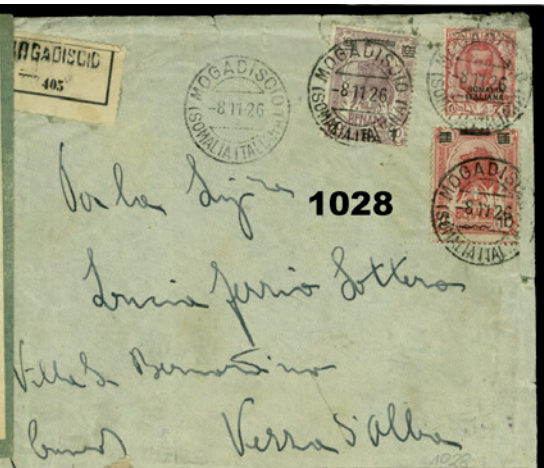 MOGADISCIO
405
MOGADISCIO
-8.11.26
(SOMALIA ITAL.)
MOGADISCIO
-8.11.26
(SOMALIA ITAL.)
-8.11.26
SOMALIA
ITALIANA
MOGADISCIO
-8.11.26
(SOMALIA ITAL.)
1028
Lucia Ferrio Sottero
Villa S. Bernardino
Verzra d'Alba
1028